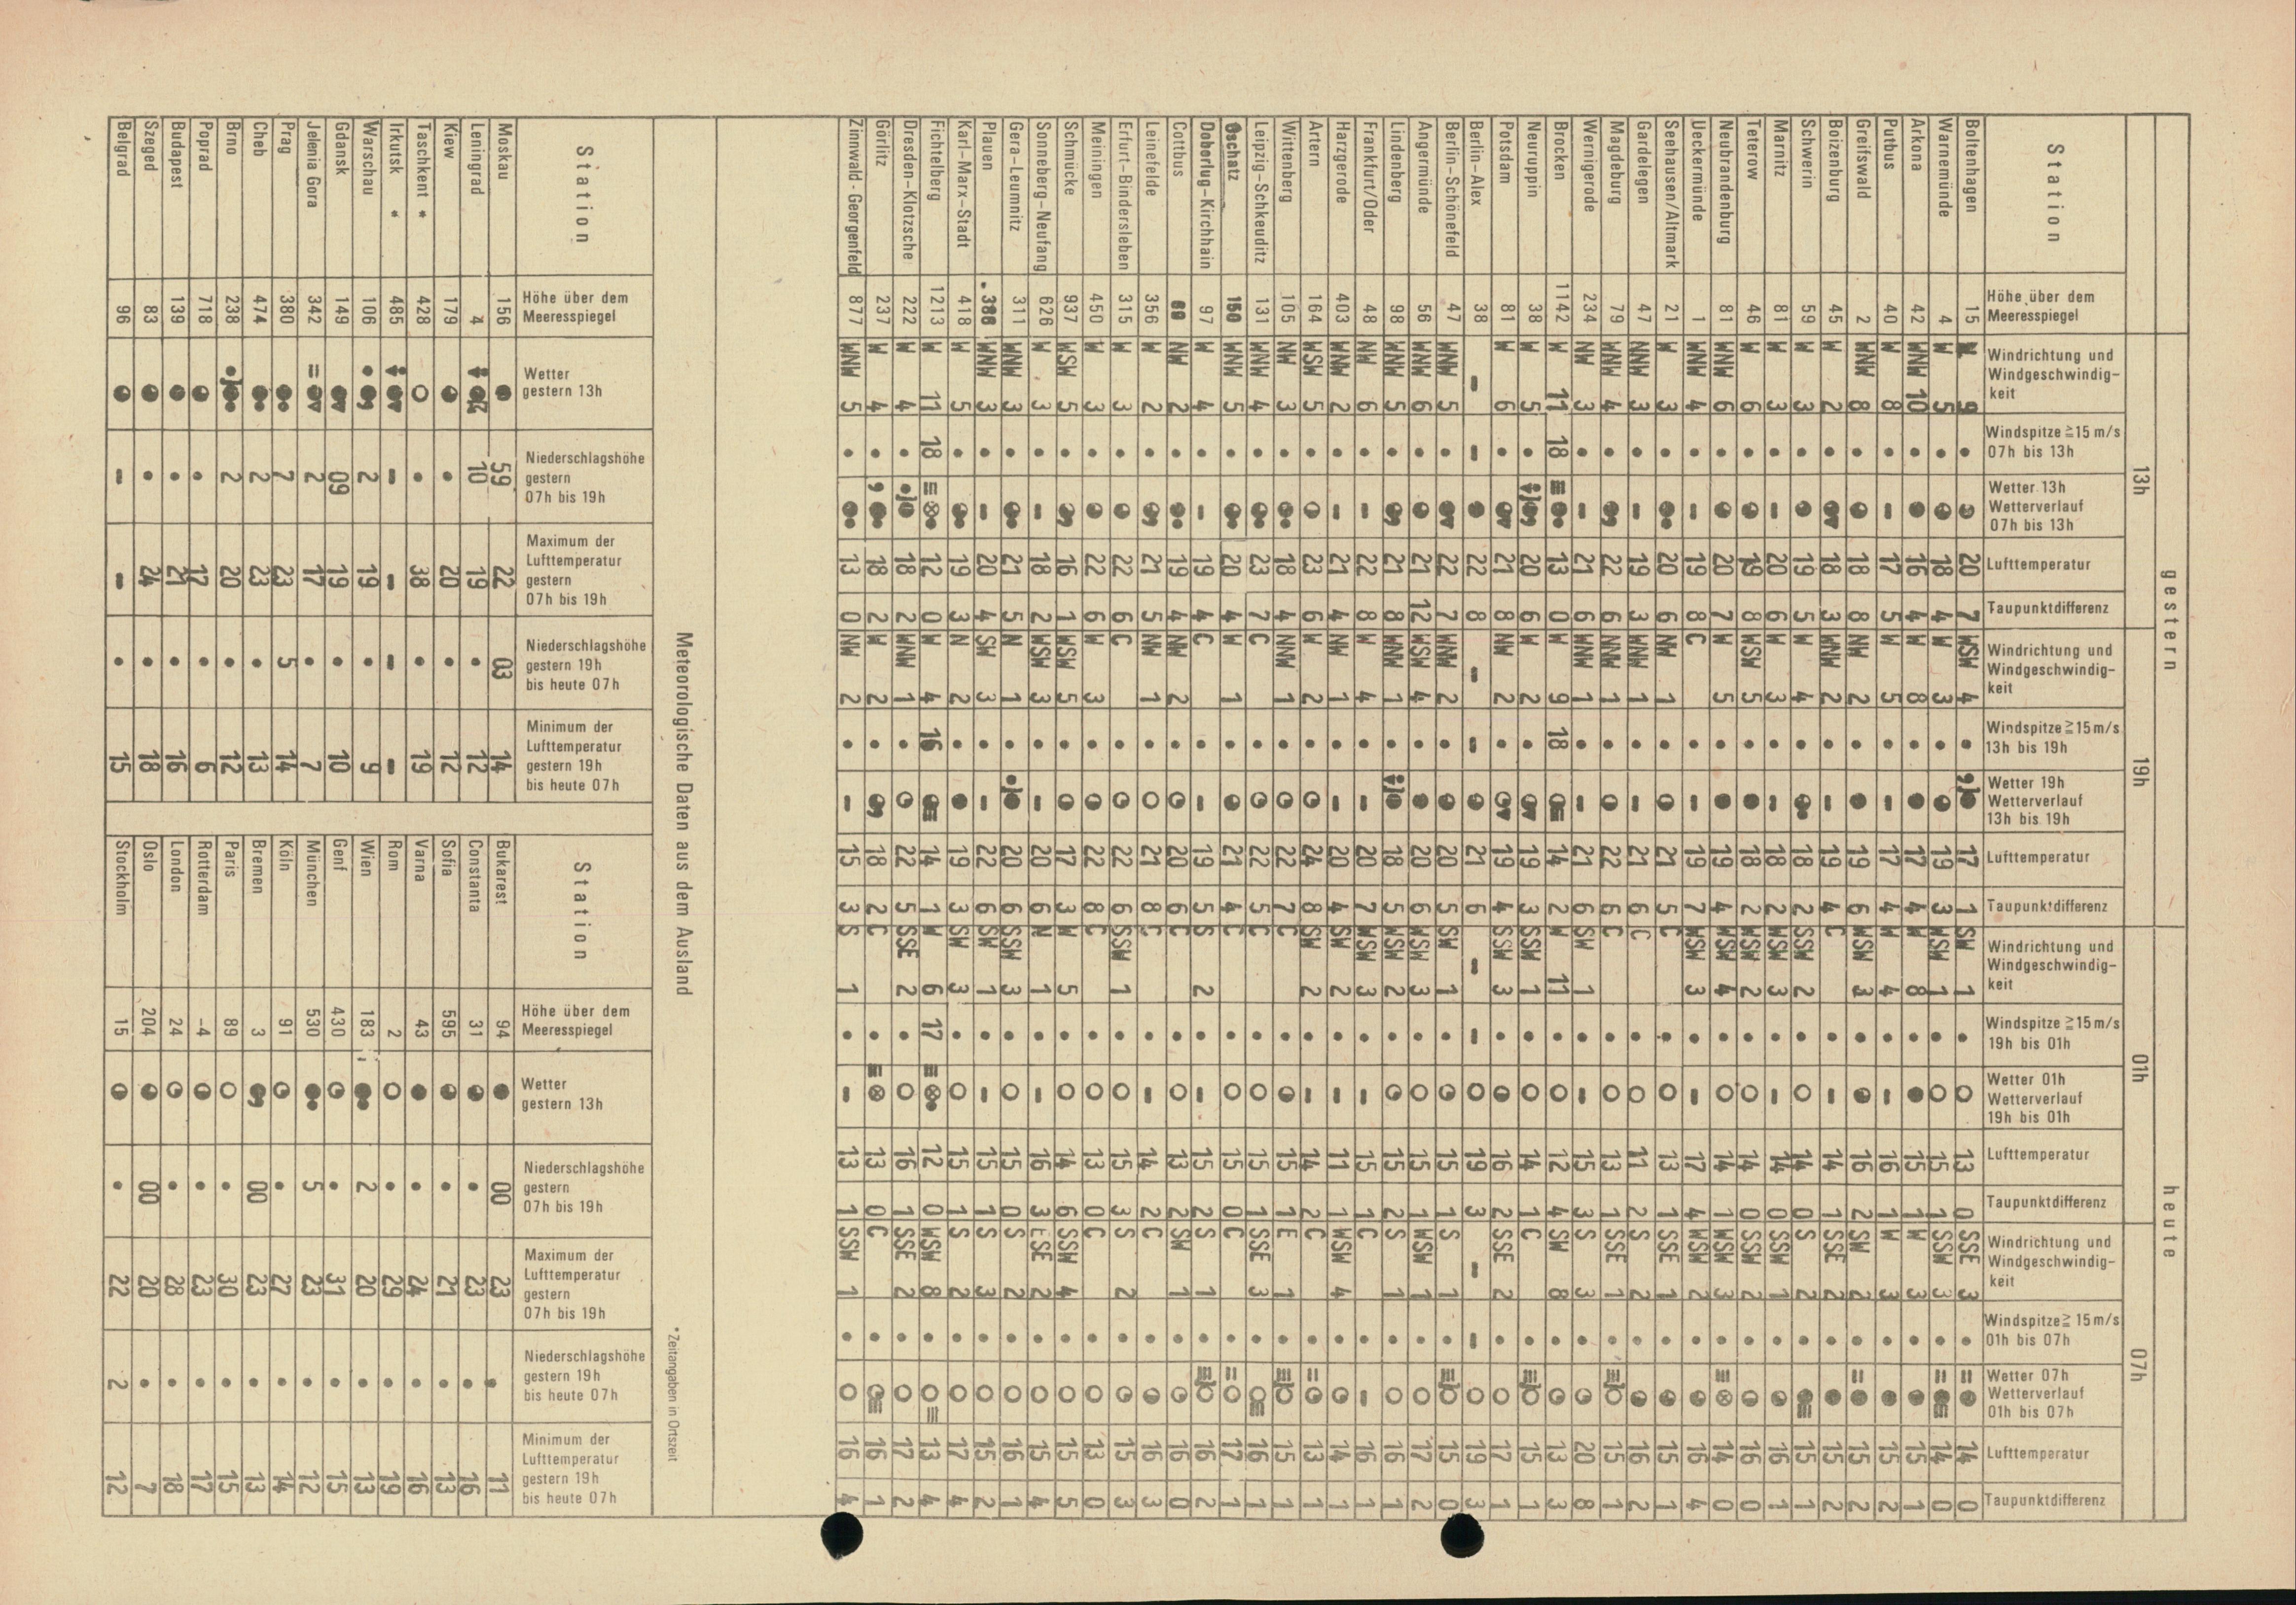 gestern heute
13h 19h 01h 07h
Station
Höhe über dem Meeresspiegel
Windrichtung und Windgeschwindig-keit
Windspitze ≧15 m/s 07h bis 13h
Wetter 13h Wetterverlauf 07h bis 13h
Lufttemperatur
Taupunktdifferenz
Windrichtung und Windgeschwindig-keit
Windspitze ≧15 m/s 13h bis 19h
Wetter 19h Wetterverlauf 13h bis 19h
Lufttemperatur
Taupunktdifferenz
Windrichtung und Windgeschwindig-keit
Windspitze ≧15 m/s 19h bis 01h
Wetter 01h Wetterverlauf 19h bis 01h
Lufttemperatur
Taupunktdifferenz
Windrichtung und Windgeschwindig-keit
Windspitze ≧ 15 m/s 01h bis 07h
Wetter 07h Wetterverlauf 01h bis 07h
Lufttemperatur
Taupunktdifferenz
Boltenhagen 15 9 • 20 7 WSW 4 • 17 1 SW 1 • 13 0 SSE 3 • 14 0
Warnemünde 4 W 5 • 18 4 W 3 • 19 3 WSW 1 • 15 1 SSW 3 • 14 0
Arkona 42 WNW 10 • 16 4 W 8 • 17 4 W 8 • 15 1 W 3 • 15 1
Putbus 40 W 8 • – 17 5 W 5 • – 17 4 W 4 • – 16 1 W 3 • 15 2
Greifswald 2 WNW 8 • 18 8 NW 2 • 19 6 WSW 3 • 16 2 SW 2 • 15 2
Boizenburg 45 W 2 • 18 3 WNW 2 • – 19 4 C • – 14 1 SSE 2 • 15 2
Schwerin 59 W 3 • 19 5 W 4 • 18 2 SSW 2 • 14 0 S 2 • 15 1
Marnitz 81 W 3 • – 20 6 W 3 • – 18 2 WSW 3 • – 14 0 SSW 1 • 16 1
Teterow 46 W 6 • 19 8 WSW 5 • 18 2 WSW 2 • 14 0 SSW 2 • 16 0
Neubrandenburg 81 WNW 6 • 20 7 W 5 • 19 4 WSW 4 • 14 1 WSW 3 • 14 0
Ueckermünde 1 WNW 4 • – 19 8 C • – 19 7 WSW 3 • – 17 4 WSW 2 • 16 4
Seehausen/Altmark 21 W 3 • 20 6 NW 1 • 21 5 C • 13 1 SSE 1 • 15 1
Gardelegen 47 NNW 3 • – 19 3 WNW 1 • – 21 6 C • 11 2 S 2 • 16 2
Magdeburg 79 WNW 4 • 22 6 NNW 1 • 22 6 C • 13 1 SSE 1 • 15 1
Wernigerode 234 NW 3 • – 21 6 WNW 1 • – 21 6 SW 1 • – 15 3 S 3 • 20 8
Brocken 1142 W 11 18 13 0 W 9 18 14 2 W 11 • 12 4 SW 8 • 13 3
Neuruppin 38 W 5 • 20 6 W 2 • 19 3 SSW 1 • 14 1 C • 15 1
Potsdam 81 W 6 • 21 8 NW 2 • 19 4 SSW 3 • 16 2 SSE 2 • 17 1
Berlin–Alex 38 – – 22 8 – – 21 6 – – 19 3 – – 19 3
Berlin–Schönefeld 47 WNW 5 • 22 7 WNW 2 • 20 5 SW 1 • 15 1 S 1 • 15 0
Angermünde 56 WNW 6 • 21 12 WSW 4 • 20 6 WSW 3 • 15 1 WSW 1 • 17 2
Lindenberg 98 WNW 5 • 21 8 WNW 1 • 18 5 WSW 2 • 15 2 S 1 • 16 1
Frankfurt/Oder 48 NW 6 • – 22 8 W 4 • – 20 7 WSW 3 • – 15 1 C • – 16 1
Harzgerode 403 WNW 2 • – 21 4 NW 1 • – 20 4 SW 2 • – 11 1 WSW 4 • 14 1
Artern 164 WSW 5 • 23 6 W 2 • 24 8 SSW 2 • – 14 2 C • 13 1
Wittenberg 105 NW 3 • 18 4 NNW 1 • 22 7 C • 15 1 E 1 • 15 1
Leipzig–Schkeuditz 131 WNW 4 • 23 7 C • 22 5 C • 15 1 SSE 3 • 16 1
Oschatz 150 WNW 5 • 20 4 W 1 • 21 4 C • 15 0 C • 17 1
Doberlug–Kirchhain 97 W 4 • – 19 4 C • – 19 5 S 2 • – 15 2 S 1 • 16 2
Cottbus 69 NW 2 • 19 4 NW 2 • 20 6 C • 13 2 SW 1 • 16 0
Leinefelde 356 W 2 • 21 5 NW 1 • 21 8 C • – 14 2 C • 16 3
Erfurt–Bindersleben 315 W 3 • 22 6 C • 22 6 SSW 1 • 15 3 S 2 • 15 3
Meiningen 450 W 3 • 22 6 W 3 • 22 8 C • 13 0 C • 13 0
Schmücke 937 WSW 5 • 16 1 WSW 5 • 17 3 W 5 • 14 6 SSW 4 • 15 5
Sonneberg–Neufang 626 W 3 • – 18 2 WSW 3 • – 20 6 N 1 • – 16 3 ESE 2 • 15 4
Gera–Leumnitz 311 WNW 3 • 21 5 N 1 • 20 6 SSW 3 • 15 0 S 2 • 16 1
Plauen 386 WNW 3 • – 20 4 SW 3 • – 22 6 SW 1 • – 15 1 S 3 • 15 2
Karl–Marx–Stadt 418 W 5 • 19 3 N 2 • 19 3 SW 3 • 15 1 S 2 • 17 4
Fichtelberg 1213 W 11 18 12 0 W 4 16 14 1 W 6 17 12 0 WSW 8 • 13 4
Dresden–Klotzsche 222 W 4 • 18 2 WNW 1 • 22 5 SSE 2 • 16 1 SSE 2 • 17 2
Görlitz 237 W 4 • 18 2 W 2 • 18 2 C • 13 0 C • 16 1
Zinnwald - Georgenfeld 877 WNW 5 • 13 0 NW 2 • – 15 3 S 1 • – 13 1 SSW 1 • 16 4
Meteorologische Daten aus dem Ausland
*Zeitangaben in Ortszeit
Station
Höhe über dem Meeresspiegel
Wetter gestern 13h
Niederschlagshöhe gestern 07h bis 19h
Maximum der Lufttemperatur gestern 07h bis 19h
Niederschlagshöhe gestern 19h bis heute 07h
Minimum der Lufttemperatur gestern 19h bis heute 07h
Moskau 156 59 22 03 14
Leningrad 4 10 19 • 12
Kiew 179 • 20 • 12
Taschkent * 428 • 38 • 19
Irkutsk * 485 – – – –
Warschau 106 2 19 • 9
Gdansk 149 09 19 • 10
Jelenia Gora 342 2 17 • 7
Prag 380 7 23 5 14
Cheb 474 2 23 • 13
Brno 238 2 20 • 12
Poprad 718 • 17 • 6
Budapest 139 • 21 • 16
Szeged 83 • 24 • 18
Belgrad 96 – – • 15
Station
Höhe über dem Meeresspiegel
Wetter gestern 13h
Niederschlagshöhe gestern 07h bis 19h
Maximum der Lufttemperatur gestern 07h bis 19h
Niederschlagshöhe gestern 19h bis heute 07h
Minimum der Lufttemperatur gestern 19h bis heute 07h
Bukarest 94 00 23 • 11
Constanta 31 • 23 • 16
Sofia 595 • 21 • 13
Varna 43 • 24 • 16
Rom 2 • 29 • 19
Wien 183 2 20 • 13
Genf 430 • 31 • 15
München 530 5 23 • 12
Köln 91 • 27 • 14
Bremen 3 00 23 • 13
Paris 89 • 30 • 15
Rotterdam -4 • 23 • 17
London 24 • 28 • 18
Oslo 204 00 20 • 7
Stockholm 15 • 22 2 12